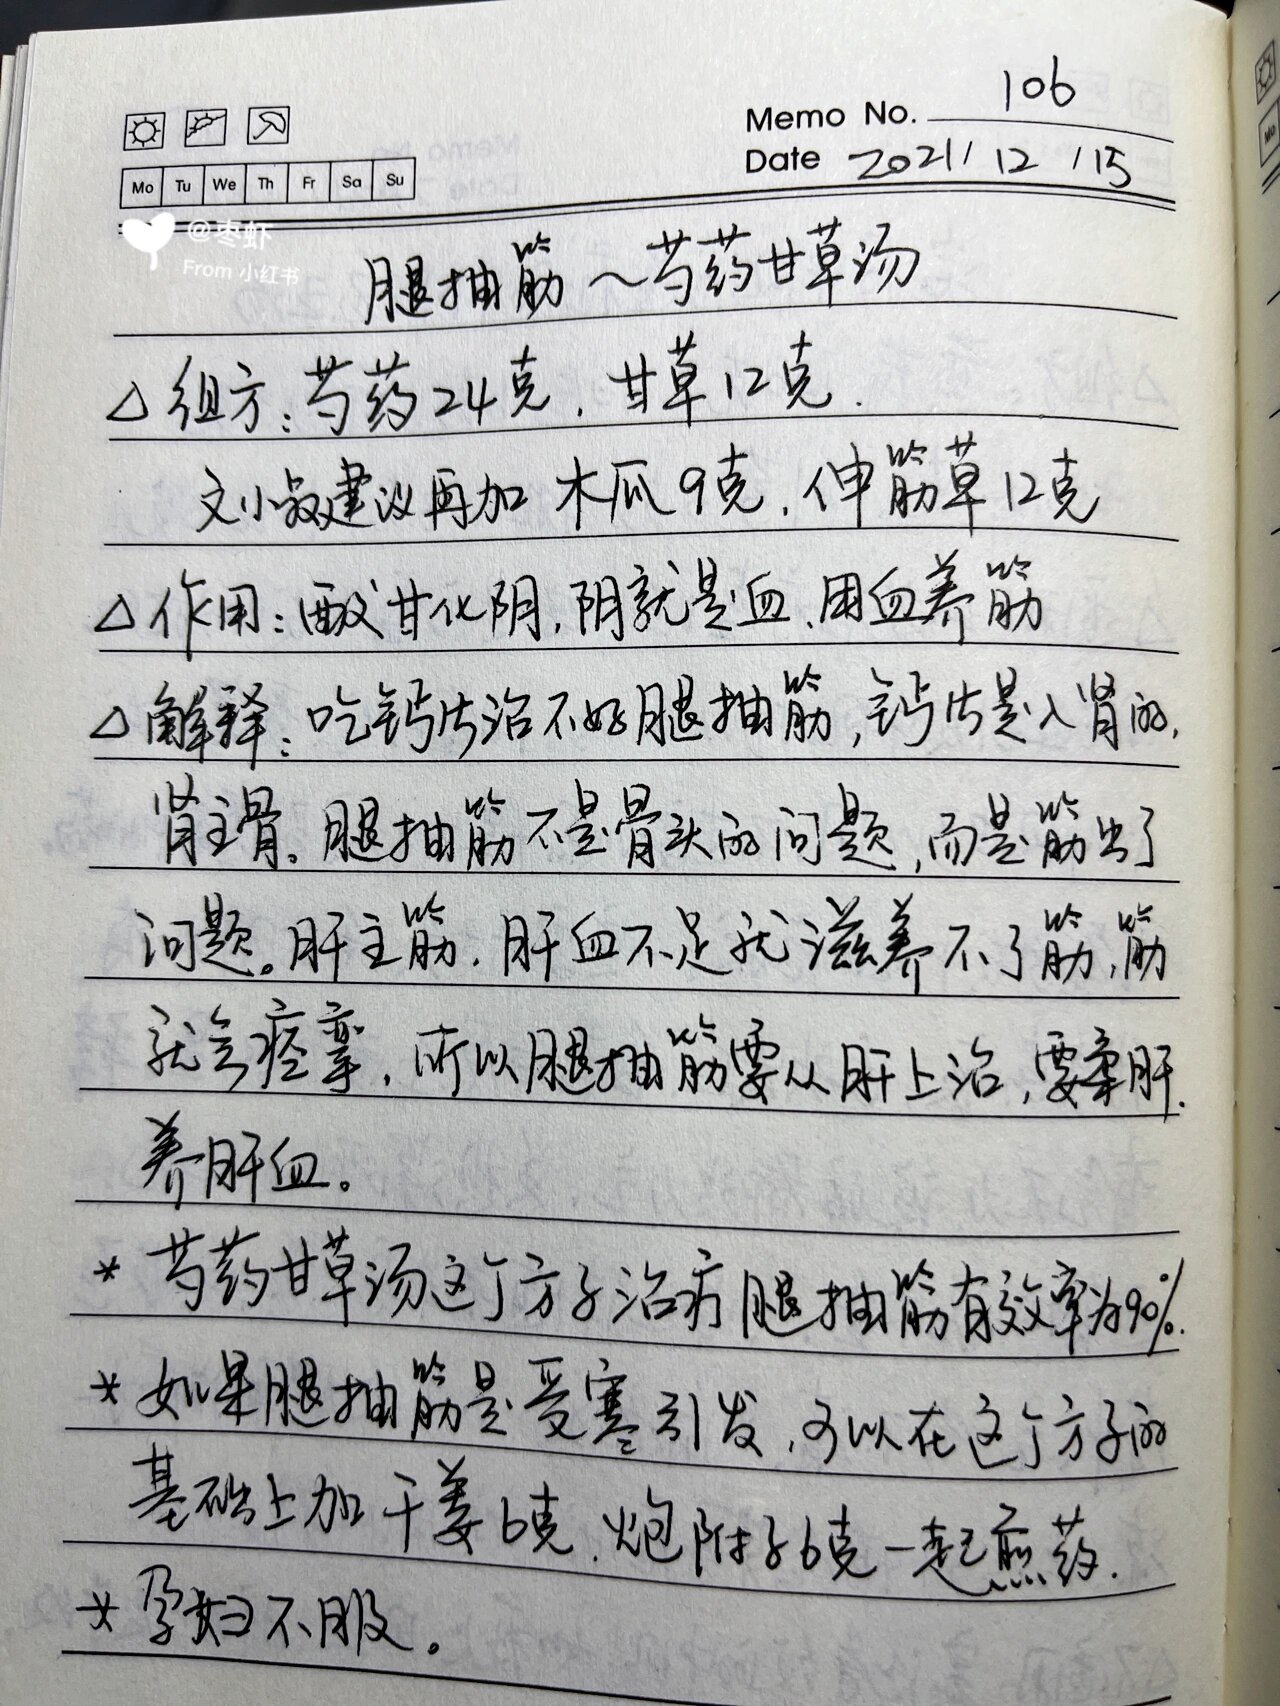 Memo No. 106
Date 2021/12/15
Mo Tu We Th Fr Sa Su
@枣虾
From 小红书
腿抽筋～芍药甘草汤
△组方：芍药24克，甘草12克.
文小叔建议再加 木瓜9克，伸筋草12克
△作用：酸甘化阴，阴就是血、用血养筋
△解释：吃钙片治不好腿抽筋，钙片是入肾的，
肾主骨。腿抽筋不是骨头的问题，而是筋出了
问题。肝主筋．肝血不足就滋养不了筋，筋
就会痉挛，所以腿抽筋要从肝上治，要柔肝．
养肝血。
* 芍药甘草汤这个方子治疗腿抽筋有效率为90%.
* 如果腿抽筋是受寒引发，可以在这个方子的
基础上加干姜6克．炮附子6克一起煎药．
* 孕妇不服。
Mo